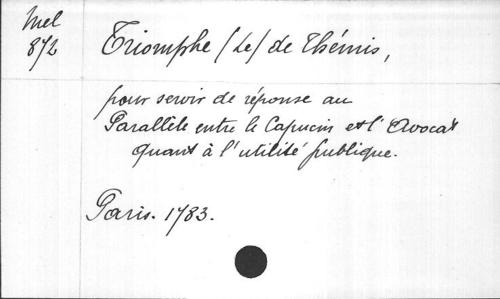 Mel
872
Triomphe /Le/ de Thémis,
pour servir de réponse au
Parallèle entre le Capucin et l'Avocat
quant à l'utilité publique.
Paris. 1783.